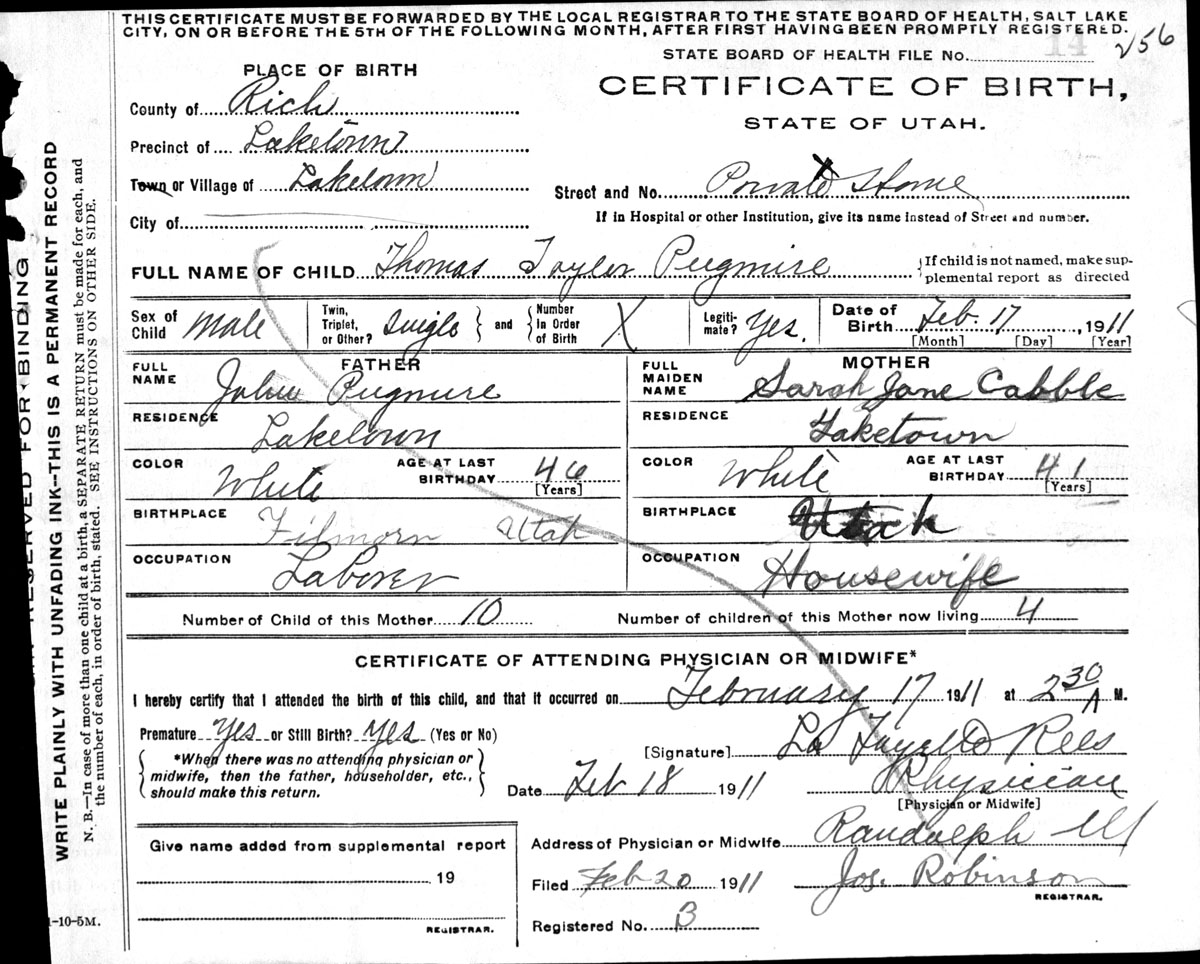 THIS CERTIFICATE MUST BE FORWARDED BY THE LOCAL REGISTRAR TO THE STATE BOARD OF HEALTH, SALT LAKE
CITY, ON OR BEFORE THE 5TH OF THE FOLLOWING MONTH, AFTER FIRST HAVING BEEN PROMPTLY REGISTERED.
14 256
STATE BOARD OF HEALTH FILE NO.
PLACE OF BIRTH
CERTIFICATE OF BIRTH,
STATE OF UTAH.
County of Rich
Precinct of Laketown
Town or Village of Laketown
Street and No. Private Home
City of
If in Hospital or other Institution, give its name instead of Street and number.
FULL NAME OF CHILD Thomas Taylor Pugmire {If child is not named, make sup-
plemental report as directed
Sex of Child Male
Twin, Triplet, or Other? Single } and { Number In Order of Birth X
Legiti- mate? Yes.
Date of Birth Feb. 17, 1911
[Month] [Day] [Year]
FATHER
FULL NAME John Pugmire
RESIDENCE Laketown
COLOR White AGE AT LAST BIRTHDAY 46
[Years]
BIRTHPLACE Filmorn Utah
OCCUPATION Laborer
MOTHER
FULL MAIDEN NAME Sarah Jane Cabble
RESIDENCE Laketown
COLOR White AGE AT LAST BIRTHDAY 41
[Years]
BIRTHPLACE Utah
OCCUPATION Housewife
Number of Child of this Mother 10 Number of children of this Mother now living 4
CERTIFICATE OF ATTENDING PHYSICIAN OR MIDWIFE*
I hereby certify that I attended the birth of this child, and that it occurred on February 17 1911 at 2 30 A M.
Premature yes or Still Birth? yes (Yes or No)
[Signature] La Fayette Rees
{*When there was no attending physician or
midwife, then the father, householder, etc.,
should make this return.}
Date Feb 18 1911 Physician
[Physician or Midwife]
Address of Physician or Midwife Randolph
Filed Feb 20 1911 Jos. Robinson
REGISTRAR.
Registered No. B
Give name added from supplemental report
19
REGISTRAR.
RESERVED FOR BINDING
WRITE PLAINLY WITH UNFADING INK--THIS IS A PERMANENT RECORD
N. B.—In case of more than one child at a birth, a SEPARATE RETURN must be made for each, and
the number of each, in order of birth, stated. SEE INSTRUCTIONS ON OTHER SIDE.
1-10-5M.